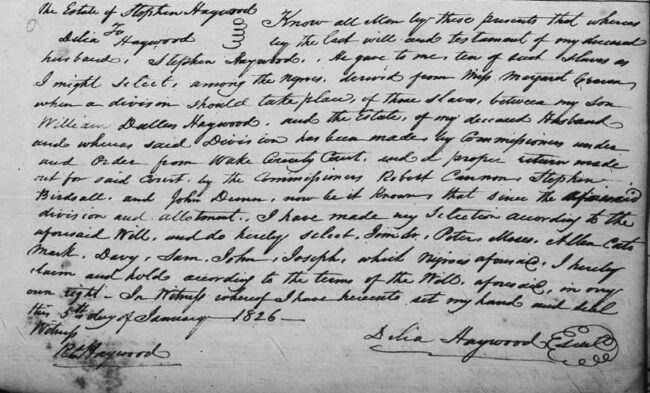 The Estate of Stephen Haywood
To
Delia Haywood
Know all Men by these presents that whereas
by the last will and testament of my deceased
husband, Stephen Haywood, He gave to me ten of such slaves as
I might select, among the negroes, derived from Miss Margaret
when a division should take place, of those slaves, between my Son
William Dallas Haywood, and the Estate, of my deceased Husband
and whereas said Division has been made, by Commissioners under
and Order from Wake County Court, and a proper return made
out for said Court, by the Commissioners Robert Cannon, Stephen
Birdsall, and John Dunn, now be it Known, that since the aforesaid
division and allotment, I have made my Selection according to the
aforesaid Will, and do hereby select, Peter, Moses, Allen
Mark, Davy, Sam, John, Joseph, which Negroes aforesaid, I hereby
claim and hold according to the terms of the Will, aforesaid, in my
own right – In Witness whereof I have hereunto set my hand and seal
this 5th day of January 1826 –
Witness
Delia Haywood
Haywood